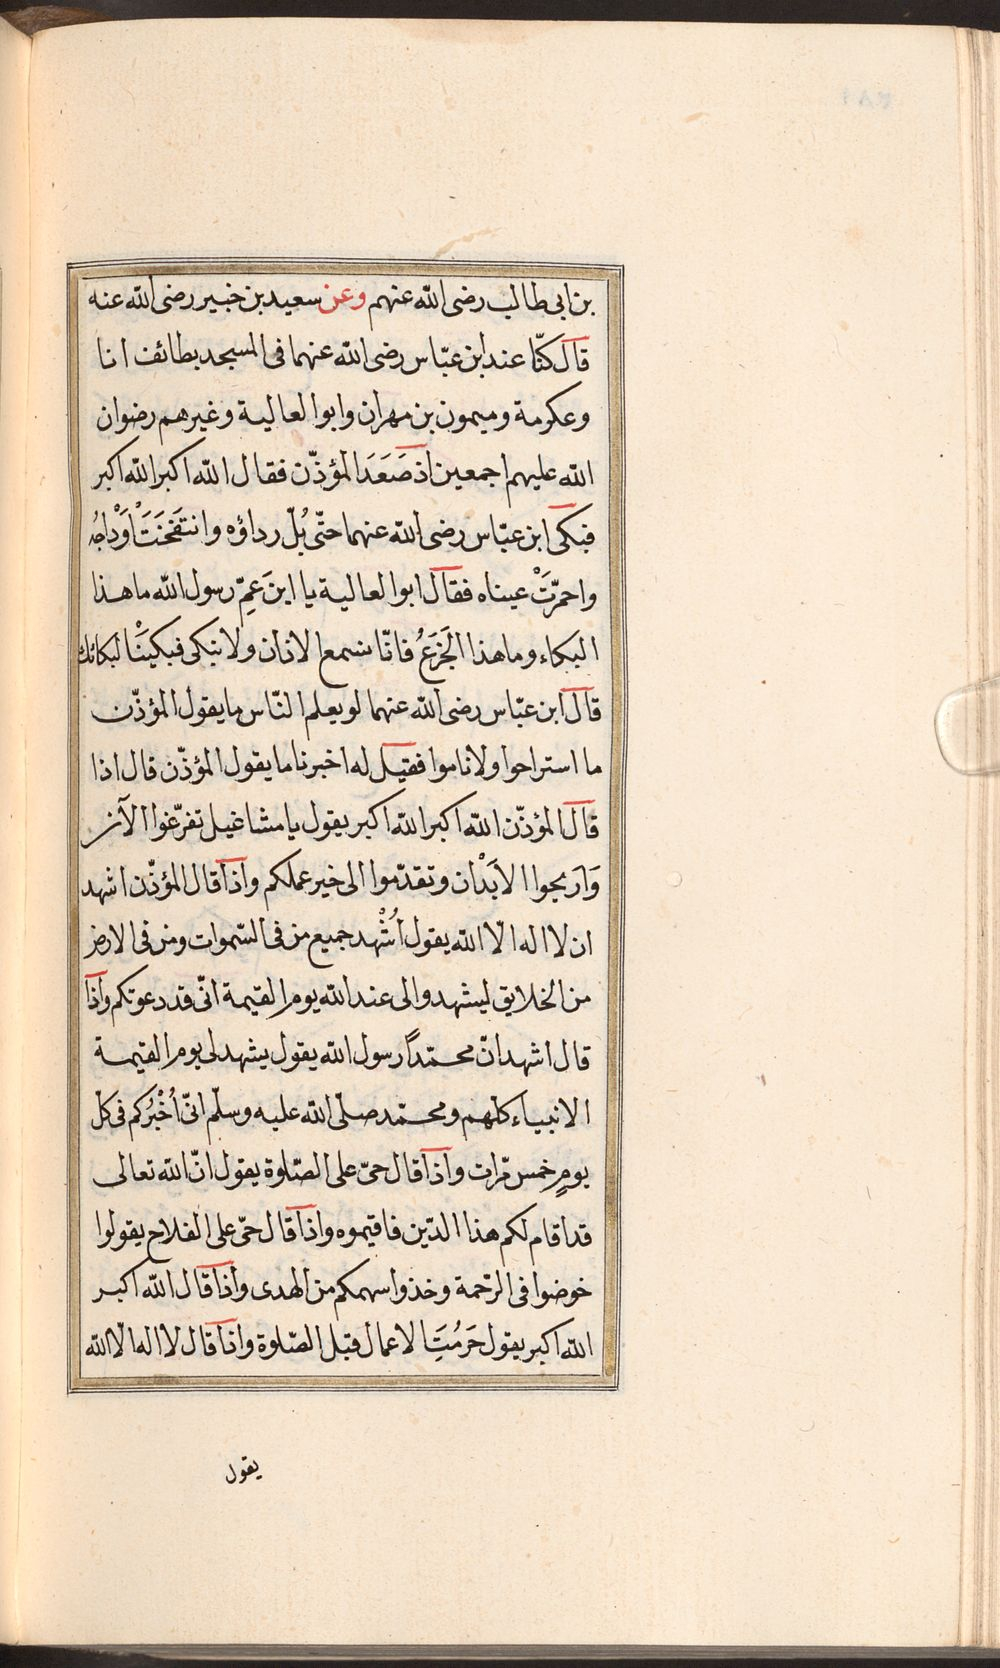 بن ابى طالب رضى الله عنهم وعن سعيد بن جبير رضى الله عنه
قال كنّا عند ابن عبّاس رضى الله عنهما فى المسجد بطائف انا
وعكرمة وميمون بن مهران وابوا لعالية وغيرهم رضوان
الله عليهم اجمعين اذ صَعَدَ المؤذّن فقال الله اكبر الله اكبر
فبكى ابن عبّاس رضى الله عنهما حتّى بُلّ رداؤه وانتفَخَتَْ اَوْداجُه
واحمرّتَْ عيناه فقال ابوا لعالية يا ابنَ عمِّ رسول الله ما هذا
البكاء وما هذا الجَزَعُ فانّا نسمع الاذان ولا نبكى فبكينَْا لبكائك
قال ابن عبّاس رضى الله عنهما لو يعلم النّاس ما يقول المؤذّن
ما استراحوا ولا ناموا فقيل له اخبرنا ما يقول المؤذّن قال اذا
قال المؤذّن الله اكبر الله اكبر يقول يا مشاغيل تفرّغوا الآن
وَاريحوا الاَبَدْان وتقدّموا الى خير عملكم واذا قال المؤذّن اشهد
ان لا اله الّا الله يقول اُشْهد جميع من فى السّموات ومن فى الارض
من الخلايق ليشهدوا لى عند الله يوم القيمة انّى قد دعوتكم واذا
قال اشهد انّ محمّدًا رسول الله يقول يشهد لى يوم القيمة
الانبياء كلهم ومحمّد صلّى الله عليه وسلّم انّى اُخْبُركم فى كلّ
يومٍ خمس مّرات واذا قال حىّ على الصّلوة يقول انّ الله تعالى
قد اقام لكم هذا الدّين فاقيموه واذا قال حّى على الفلاح يقولوا
خوضوا فى الرّحمة وخذوا سهمكم من الهدى واذا قال الله اكبر
الله اكبر يقول حَرُمَتِ الاعمال قبل الصّلوة واذا قال لا اله الّا الله
يقول